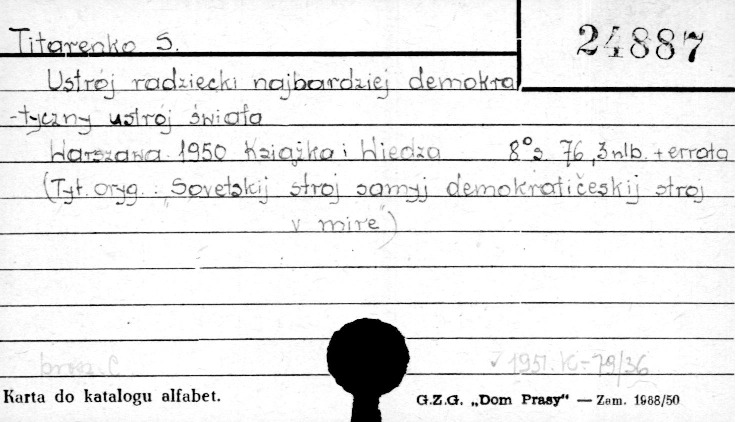 Titarenko S.
24887
Ustrój radziecki najbardziej demokra
-tyczny ustrój świata
Warszawa 1950 Książka i Wiedza 8° s. 76, 3 nlb. + errata
(Tyt. oryg. : „Sovetskij stroj samyj demokratičeskij stroj
v mire")
1951. K-79/36
Karta do katalogu alfabet.
G.Z.G. „Dom Prasy" — Zam. 1988/50